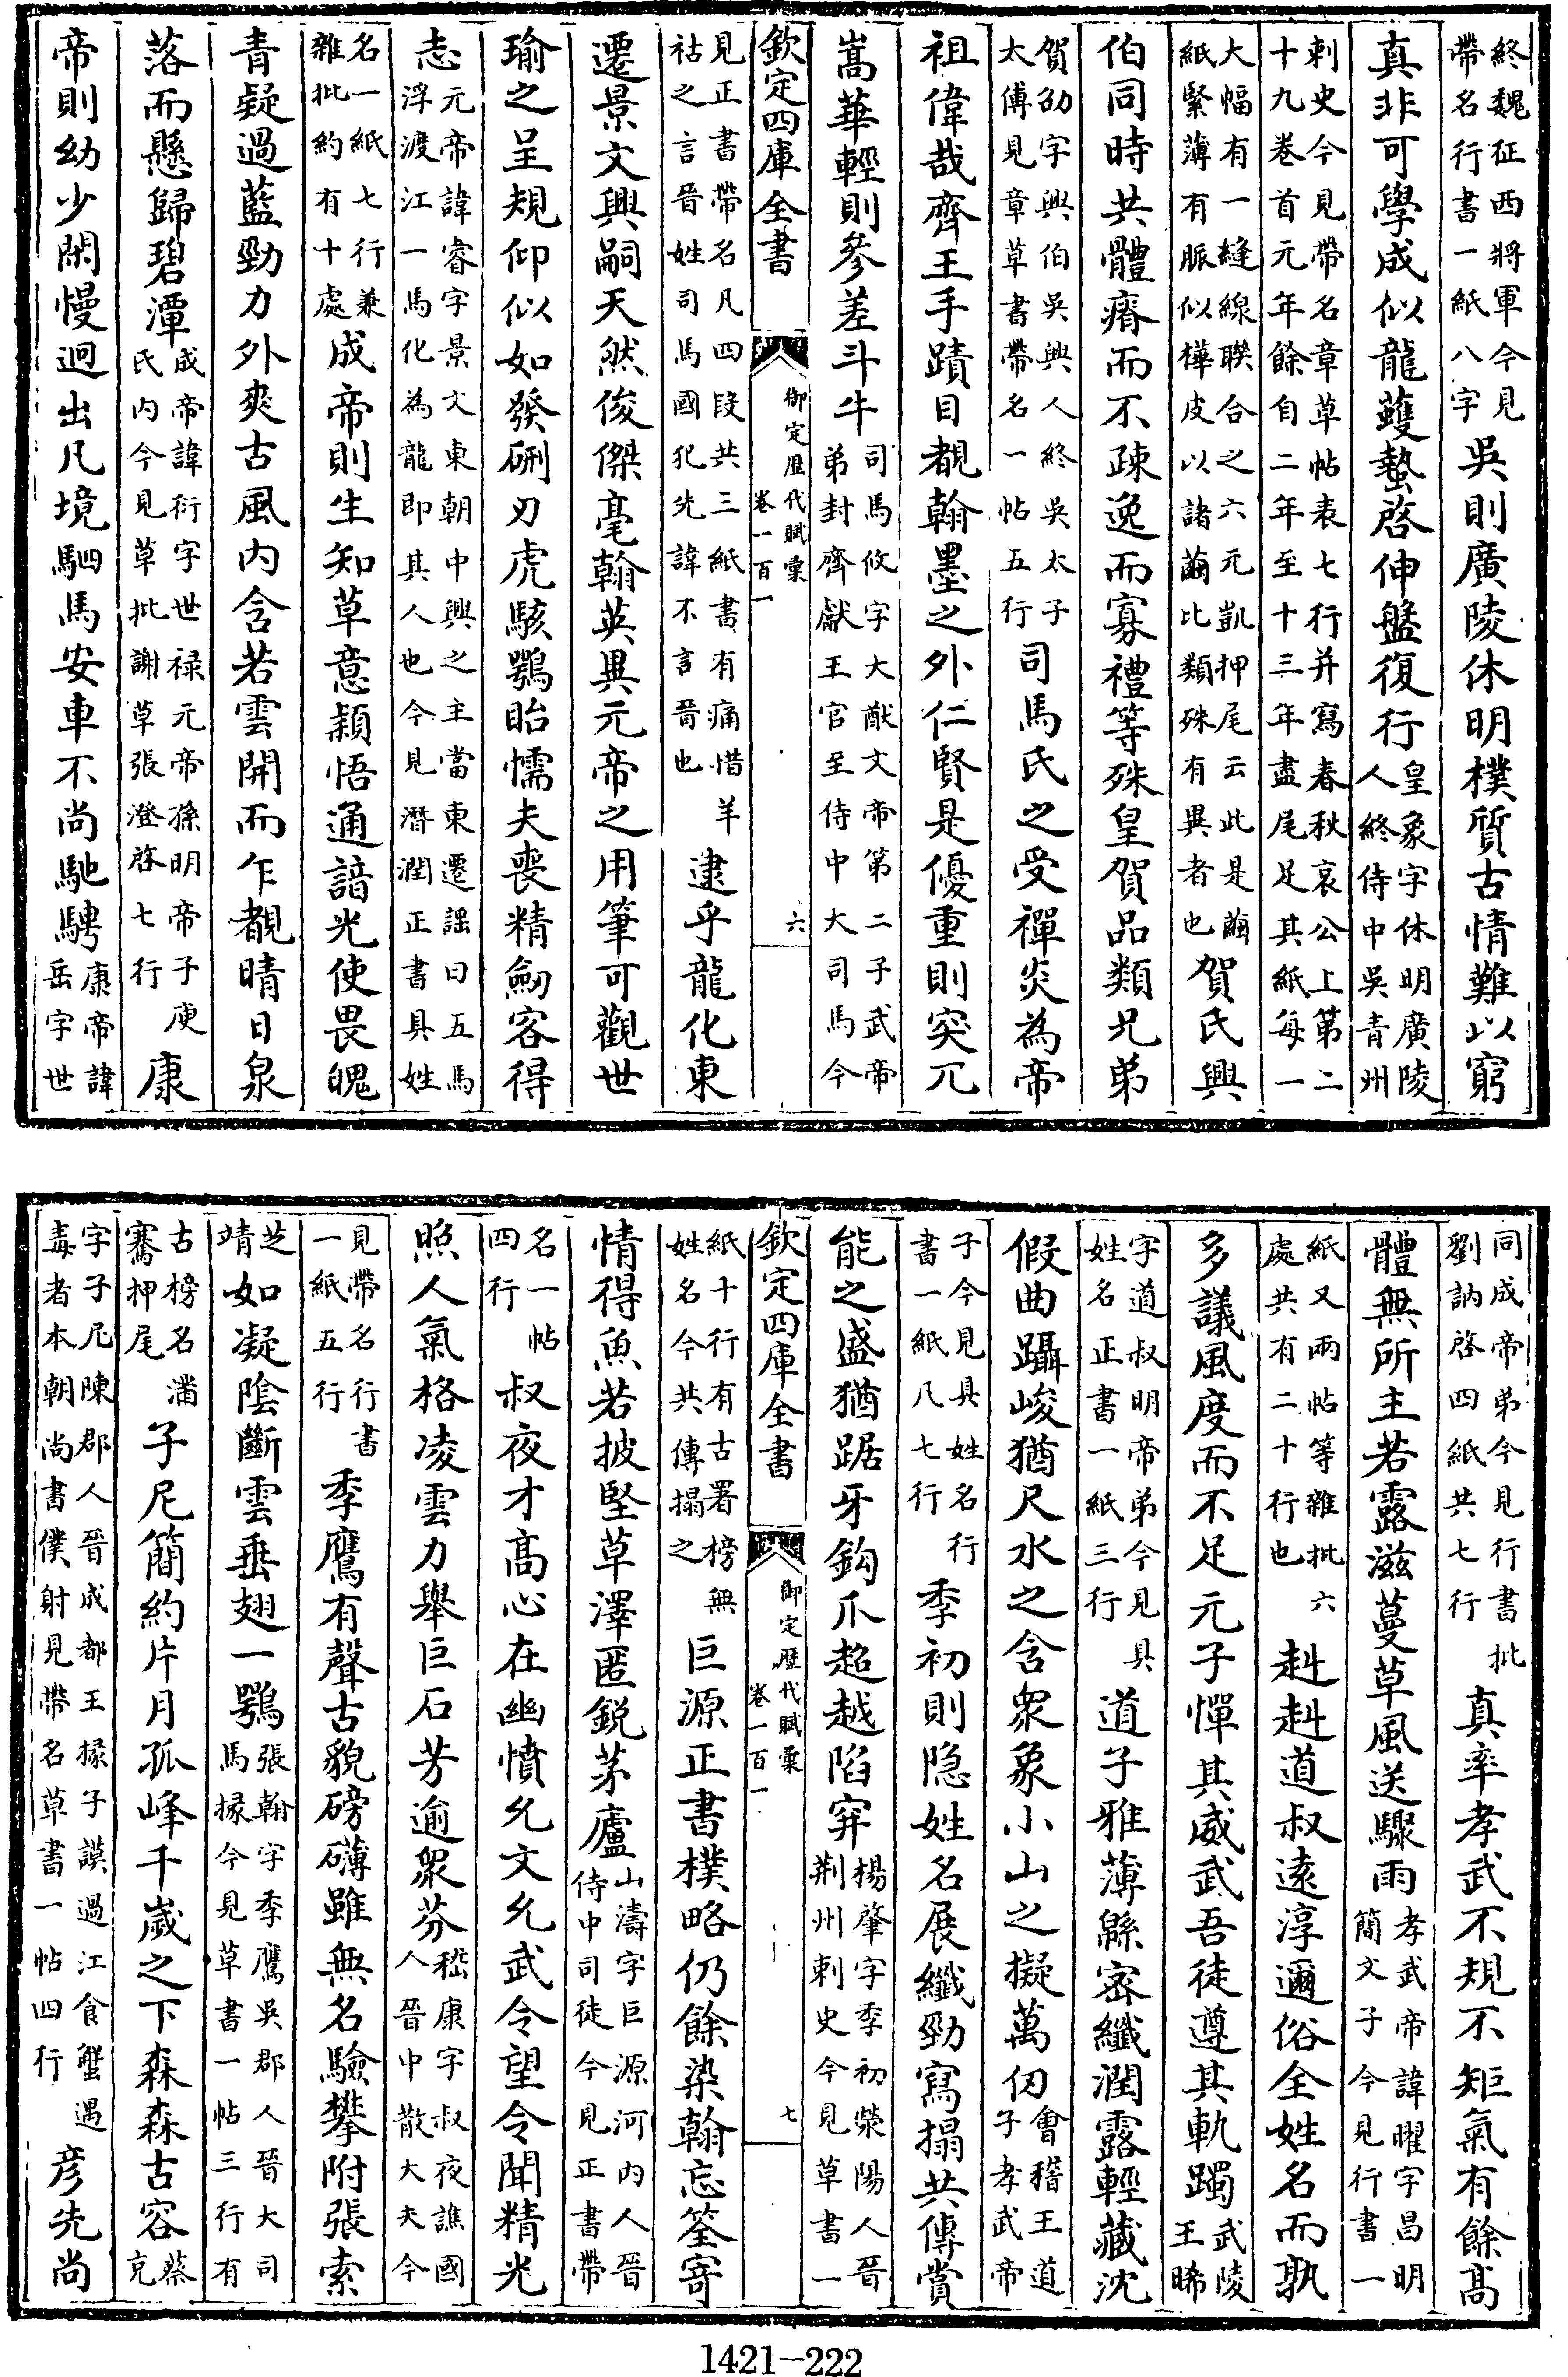 終魏征西將軍今見
帶名行書一紙八字
吳則廣陵休明樸質古情難以窮
真非可學成似龍蠖蟄啓伸盤復行
皇象字休明廣陵
人終侍中吳青州
刺史今見帶名章草帖表七行并寫春秋哀公上第二
十九卷首元年餘自二年至十三年盡尾足其紙每一
大幅有一縫線聯合之六元凱押尾云此是繭
紙緊薄有脈似樺皮以諸繭比類殊有異者也
賀氏興
伯同時共體瘠而不疎逸而寡禮等殊皇賀品類兄弟
賀劭字興伯吳興人終吳太子
太傅見章草書帶名一帖五行
司馬氏之受禪炎為帝
祖偉哉齊王手蹟目覩翰墨之外仁賢是優重則突兀
嵩華輕則參差斗牛
司馬攸字大猷文帝第二子武帝
弟封齊獻王官至侍中大司馬今
欽定四庫全書
御定歷代賦彙
卷一百一
六
見正書帶名凡四段共三紙書有痛惜羊
祜之言晉姓司馬國犯先諱不言晉也
逮乎龍化東
遷景文興嗣天然俊傑毫翰英異元帝之用筆可觀世
瑜之呈規仰似如發硎刃虎駭鶚眙懦夫喪精劒客得
志
元帝諱睿字景文東朝中興之主當東遷謡曰五馬
浮渡江一馬化為龍即其人也今見潛潤正書具姓
名一紙七行兼
雜批約有十處
成帝則生知草意穎悟通諳光使畏魄
青疑過藍勁力外爽古風内含若雲開而乍覩晴日泉
落而懸歸碧潭
成帝諱衍字世禄元帝孫明帝子庾
氏内今見草批謝草張澄啓七行
康
帝則幼少閑慢迥出凡境駟馬安車不尚馳騁
康帝諱
岳字世
同成帝弟今見行書批
劉訥啓四紙共七行
真率孝武不規不矩氣有餘高
體無所主若露滋蔓草風送驟雨
孝武帝諱曜字昌明
簡文子今見行書一
紙又兩帖等雜批六
處共有二十行也
赳赳道叔遠淳邇俗全姓名而孰
多議風度而不足元子憚其威武吾徒遵其軌躅
武陵
王晞
字道叔明帝弟今見具
姓名正書一紙三行
道子雅薄緜密纖潤露輕藏沈
假曲躡峻猶尺水之含衆象小山之擬萬仞
會稽王道
子孝武帝
子今見具姓名行
書一紙凡七行
季初則隐姓名展纖勁寫搨共傳賞
能之盛猶踞牙鈎爪超越陷穽
楊肇字季初滎陽人晉
荆州刺史今見草書一
欽定四庫全書
御定歷代賦彙
卷一百一
七
紙十行有古署榜無
姓名今共傳搨之
巨源正書樸略仍餘染翰忘筌寄
情得魚若披堅草澤匿鋭茅廬
山濤字巨源河内人晉
侍中司徒今見正書帶
名一帖
四行
叔夜才高心在幽憤允文允武令望令聞精光
照人氣格凌雲力舉巨石芳逾衆芬
嵇康字叔夜譙國
人晉中散大夫今
見帶名行書
一紙五行
季鷹有聲古貌磅礴雖無名驗攀附張索
芝
靖
如凝陰斷雲垂翅一鶚
張翰字季鷹吳郡人晉大司
馬掾今見草書一帖三行有
古榜名滿
騫押尾
子尼簡約片月孤峰千嵗之下森森古容
蔡
克
字子尼陳郡人晉成都王掾子謨過江食蟹遇
毒者本朝尚書僕射見帶名草書一帖四行
彦先尚
1421-222